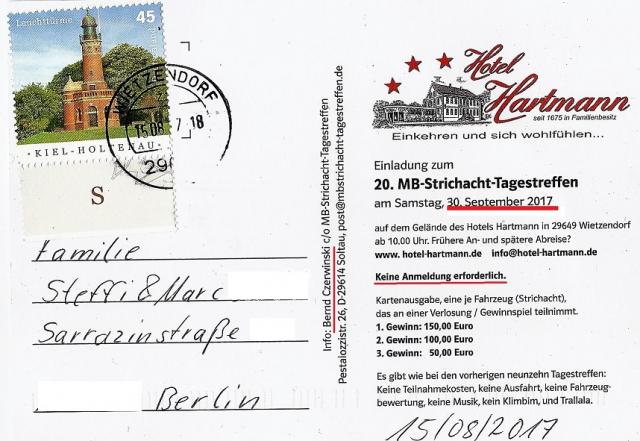 Leuchttürme
45
KIEL-HOLTENAU
S
WIETZENDORF
15.08. 7.18
Familie
Steffi & Marc
Sarrazinstraße
Berlin
Info: Bernd Czerwinski c/o MB-Strichacht-Tagestreffen
Pestalozzistr. 26, D-29614 Soltau, post@mbstrichacht-tagestreffen.de
Hotel
Hartmann
seit 1675 in Familienbesitz
Einkehren und sich wohlfühlen...
Einladung zum
20. MB-Strichacht-Tagestreffen
am Samstag, 30. September 2017
auf dem Gelände des Hotels Hartmann in 29649 Wietzendorf
ab 10.00 Uhr. Frühere An- und spätere Abreise?
www. hotel-hartmann.de info@hotel-hartmann.de
Keine Anmeldung erforderlich.
Kartenausgabe, eine je Fahrzeug (Strichacht),
das an einer Verlosung / Gewinnspiel teilnimmt.
1. Gewinn: 150,00 Euro
2. Gewinn: 100,00 Euro
3. Gewinn: 50,00 Euro
Es gibt wie bei den vorherigen neunzehn Tagestreffen:
Keine Teilnahmekosten, keine Ausfahrt, keine Fahrzeug-
bewertung, keine Musik, kein Klimbim, und Trallala.
15/08/2017